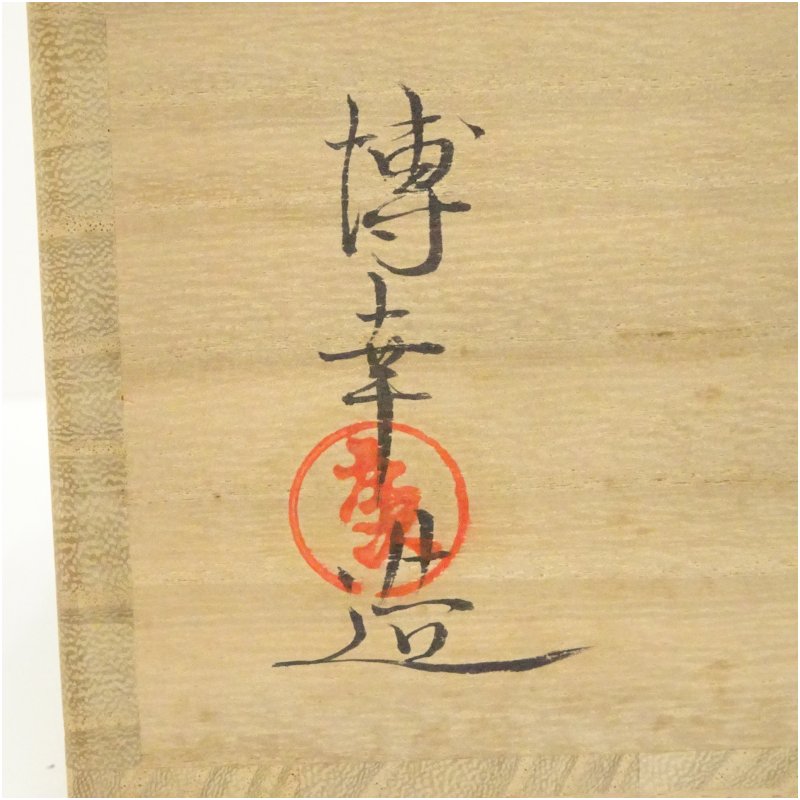 博幸造